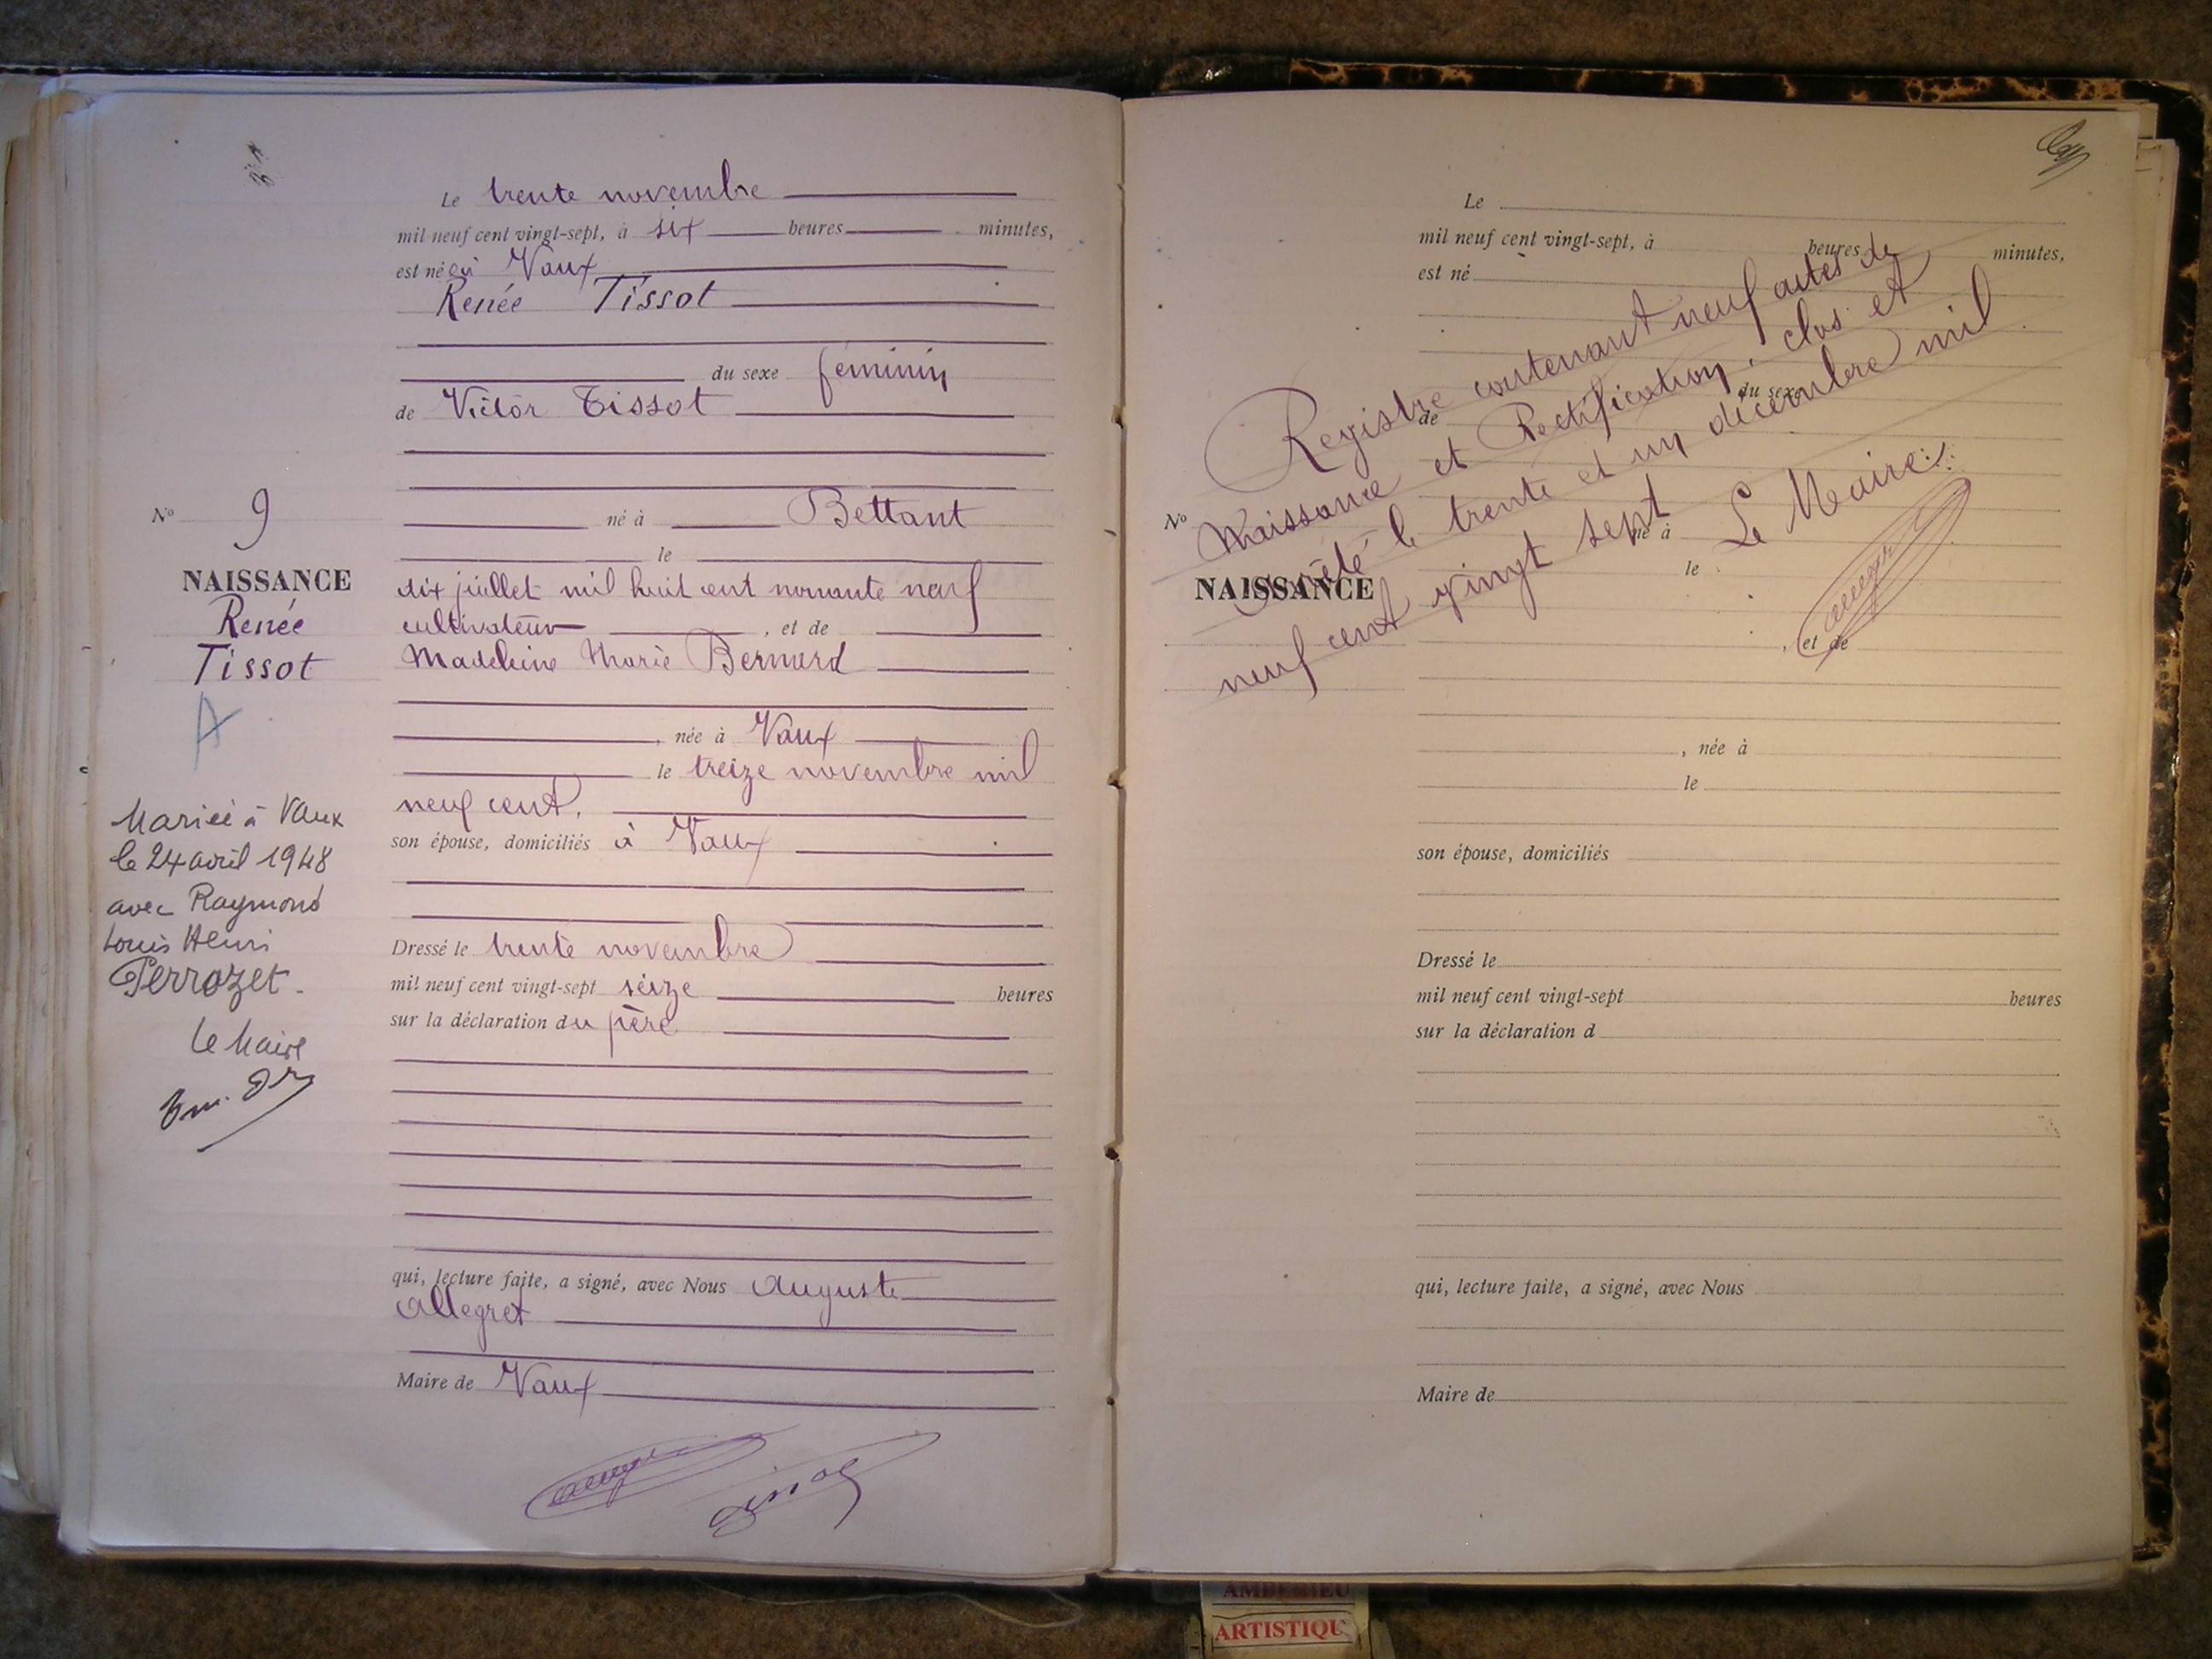 Le trente novembre
mil neuf cent vingt-sept, à six heures minutes,
est née à Vaux
Renée Tissot
du sexe féminin
de Victor Tissot
né à Bettant
le
dix juillet mil huit cent nonante neuf
cultivateur , et de
Madeleine Marie Bernard
, née à Vaux
le treize novembre mil
neuf cent,
son épouse, domiciliés à Vaux
Dressé le trente novembre
mil neuf cent vingt-sept seize heures
sur la déclaration du père
qui, lecture faite, a signé, avec Nous Auguste
Allegret
Maire de Vaux
No 9
NAISSANCE
Renée
Tissot
A
Mariée à Vaux
le 24 avril 1948
avec Raymond
Louis Henri
Perrozet.
Le Maire
Le
mil neuf cent vingt-sept, à heures minutes,
est né
du sexe
de
né à
le
, et de
, née à
le
son épouse, domiciliés
Dressé le
mil neuf cent vingt-sept heures
sur la déclaration d
qui, lecture faite, a signé, avec Nous
Maire de
No
NAISSANCE
Registre contenant neuf actes de
Naissance et Rectification, clos et
arrêté le trente et un décembre mil
neuf cent vingt sept
Le Maire
AMBERIEU
ARTISTIQU